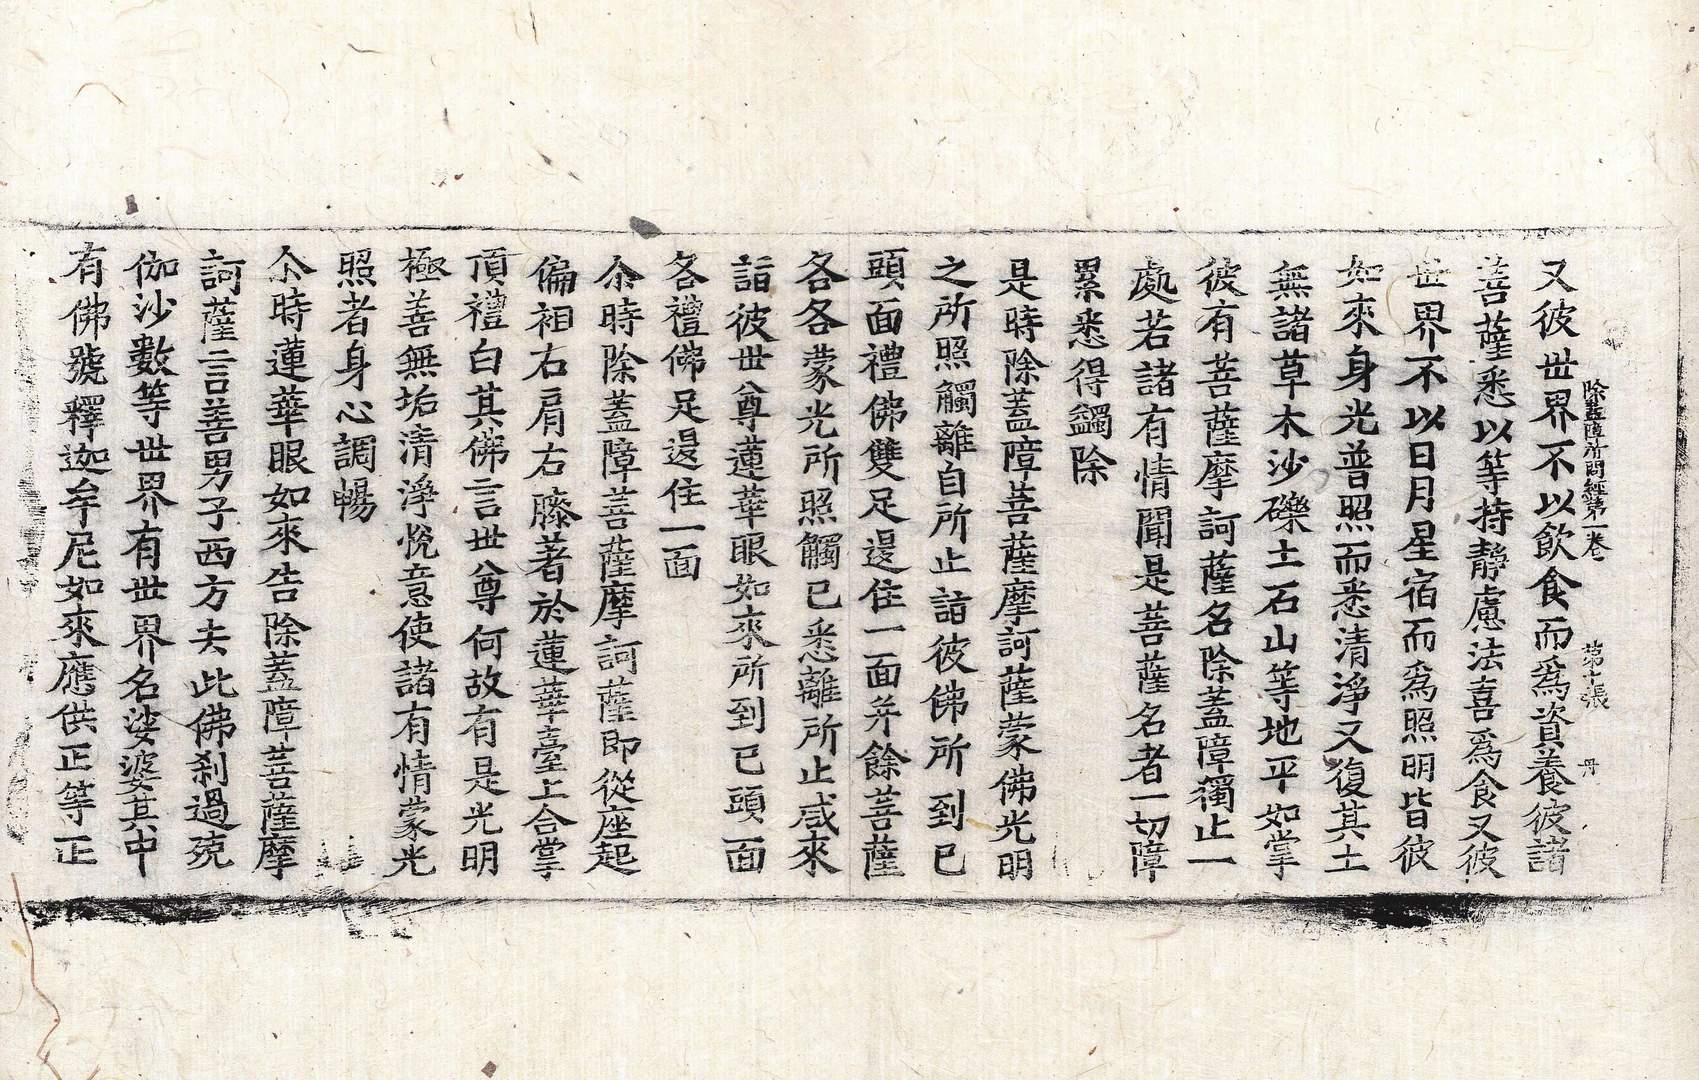 除蓋障所問經第一卷 第七張 丹
又彼世界不以飲食而爲資養彼諸
菩薩悉以等持靜慮法喜爲食又彼
世界不以日月星宿而爲照明皆彼
如來身光普照而悉清淨又復其土
無諸草木沙礫土石山等地平如掌
彼有菩薩摩訶薩名除蓋障獨止一
處若諸有情聞是菩薩名者一切障
累悉得蠲除
是時除蓋障菩薩摩訶薩蒙佛光明
之所照觸離自所止詣彼佛所到已
頭面禮佛雙足退住一面并餘菩薩
各各蒙光所照觸已悉離所止咸來
詣彼世尊蓮華眼如來所到已頭面
各禮佛足退住一面
尒時除蓋障菩薩摩訶薩即從座起
偏袒右肩右膝著於蓮華臺上合掌
頂禮白其佛言世尊何故有是光明
極善無垢清淨悅意使諸有情蒙光
照者身心調暢
尒時蓮華眼如來告除蓋障菩薩摩
訶薩言善男子西方去此佛刹過殑
伽沙數等世界有世界名娑婆其中
有佛號釋迦牟尼如來應供正等正